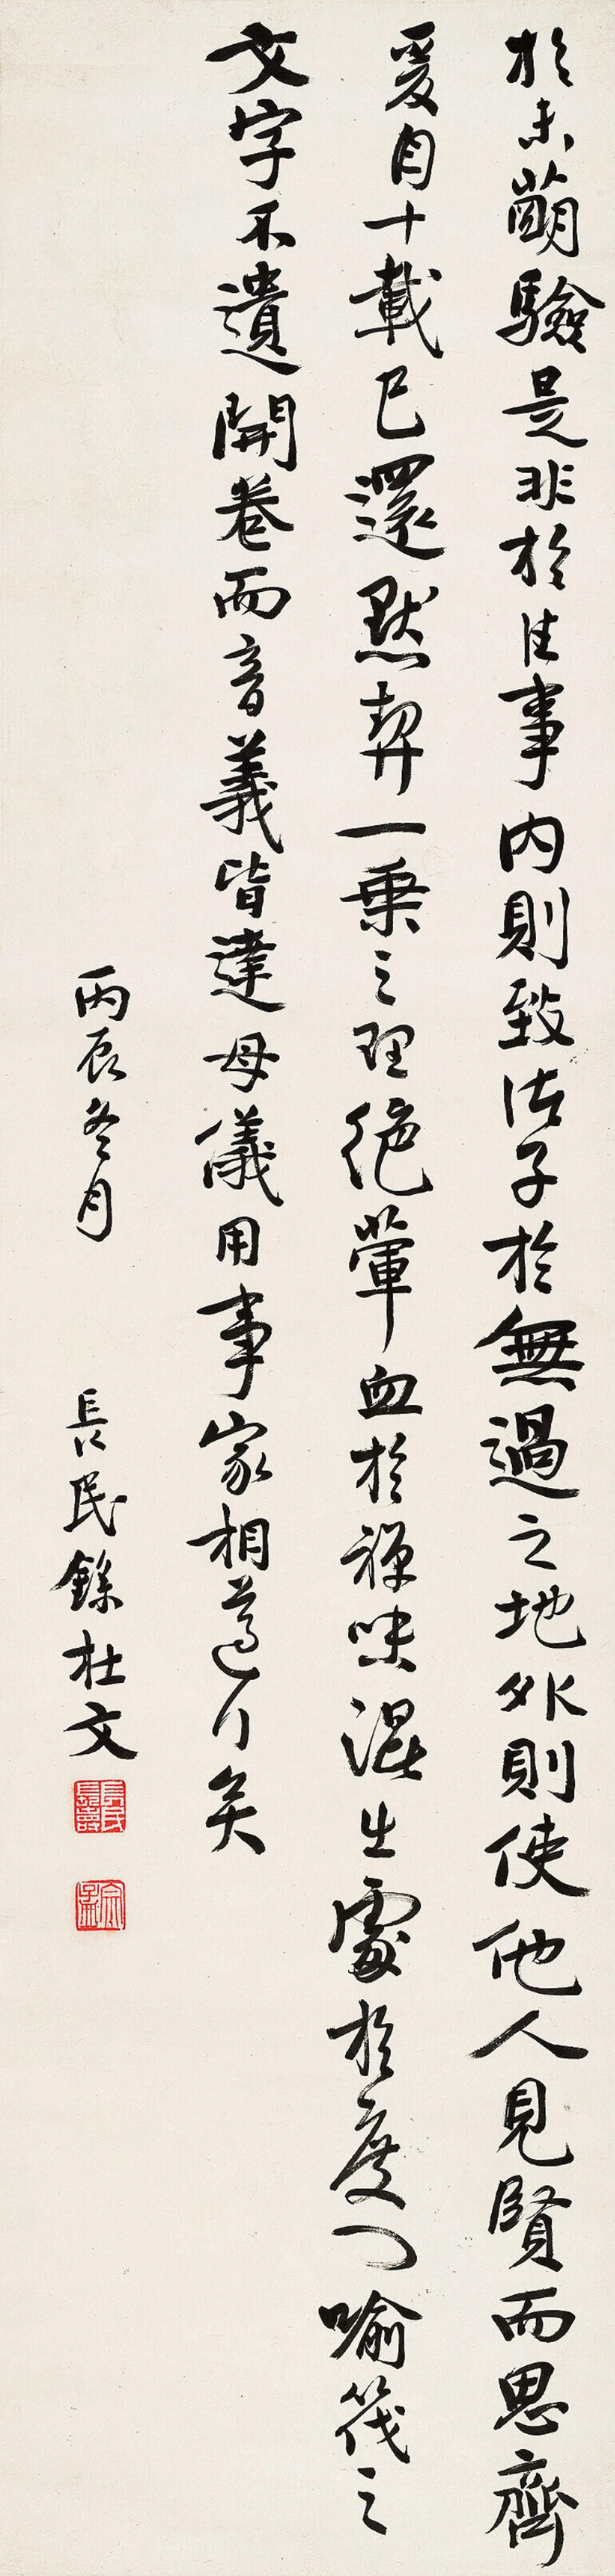 於未萌驗是非於往事內則致諸子於無過之地外則使他人見賢而思齊
爰自十載已還默契一乘之理絕葷血於禪味混生處於度門喻筏之
文字不遺開卷而音義皆達母儀用事家相遵行矣
丙辰冬月
長民錄杜文
長民長壽
宗孟